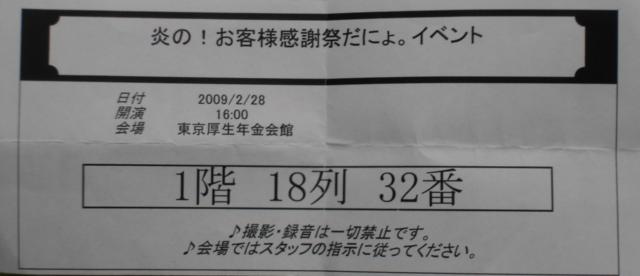 炎の！お客様感謝祭だにょ。イベント
日付 2009/2/28
開演 16:00
会場 東京厚生年金会館
1階 18列 32番
♪撮影・録音は一切禁止です。
♪会場ではスタッフの指示に従ってください。